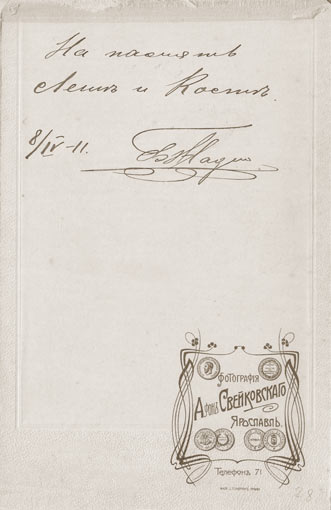 На память
Лешѣ и Костѣ.
8/IV-11.
ФОТОГРАФІЯ
А. фонъ СВЕЙКОВСКАГО
ЯРОСЛАВЛЬ.
Телефонъ 71